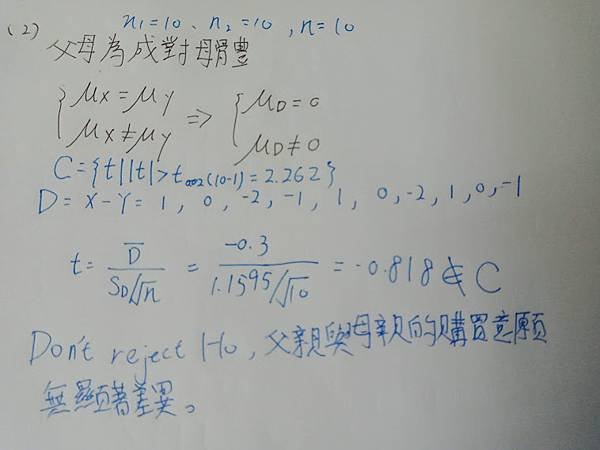 (2) n₁=10、n₂=10，n=10
父母為成對母體豊
{ μx=μy ⇒ { μD=0
μx≠μy μD≠0
C={t||t|>t₀.₀₂(10-1)=2.262}
D=X-Y=1, 0, -2, -1, 1, 0, -2, 1, 0, -1
t= D̄ / SD/√n = -0.3 / 1.1595/√10 = -0.818∉C
Don't reject Ho，父親與母親的購買意願
無顯著差異。